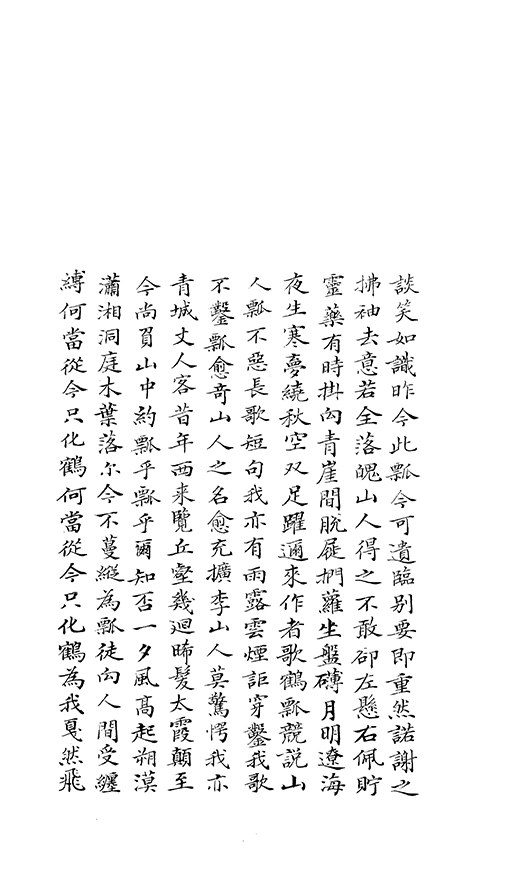 談笑如識昨今此瓢今可遺臨別要即重然諾謝之
拂袖去意若全落魄山人得之不敢卻左懸右佩貯
靈藥有時掛向青崖間脫屣捫蘿坐盤礴月明遼海
夜生寒夢繞秋空双足躍邇來作者歌鶴瓢競説山
人瓢不惡長歌短句我亦有雨露雲煙詎穿鑿我歌
不鑿瓢愈奇山人之名愈充擴李山人莫驚愕我亦
青城丈人客昔年西来覽丘壑幾迴晞髮太霞顛至
今尚負山中約瓢乎瓢乎爾知否一夕風髙起朔漠
瀟湘洞庭木葉落尔今不蔓縱為瓢徒向人間受纏
縛何當從今只化鶴何當從今只化鶴為我戛然飛